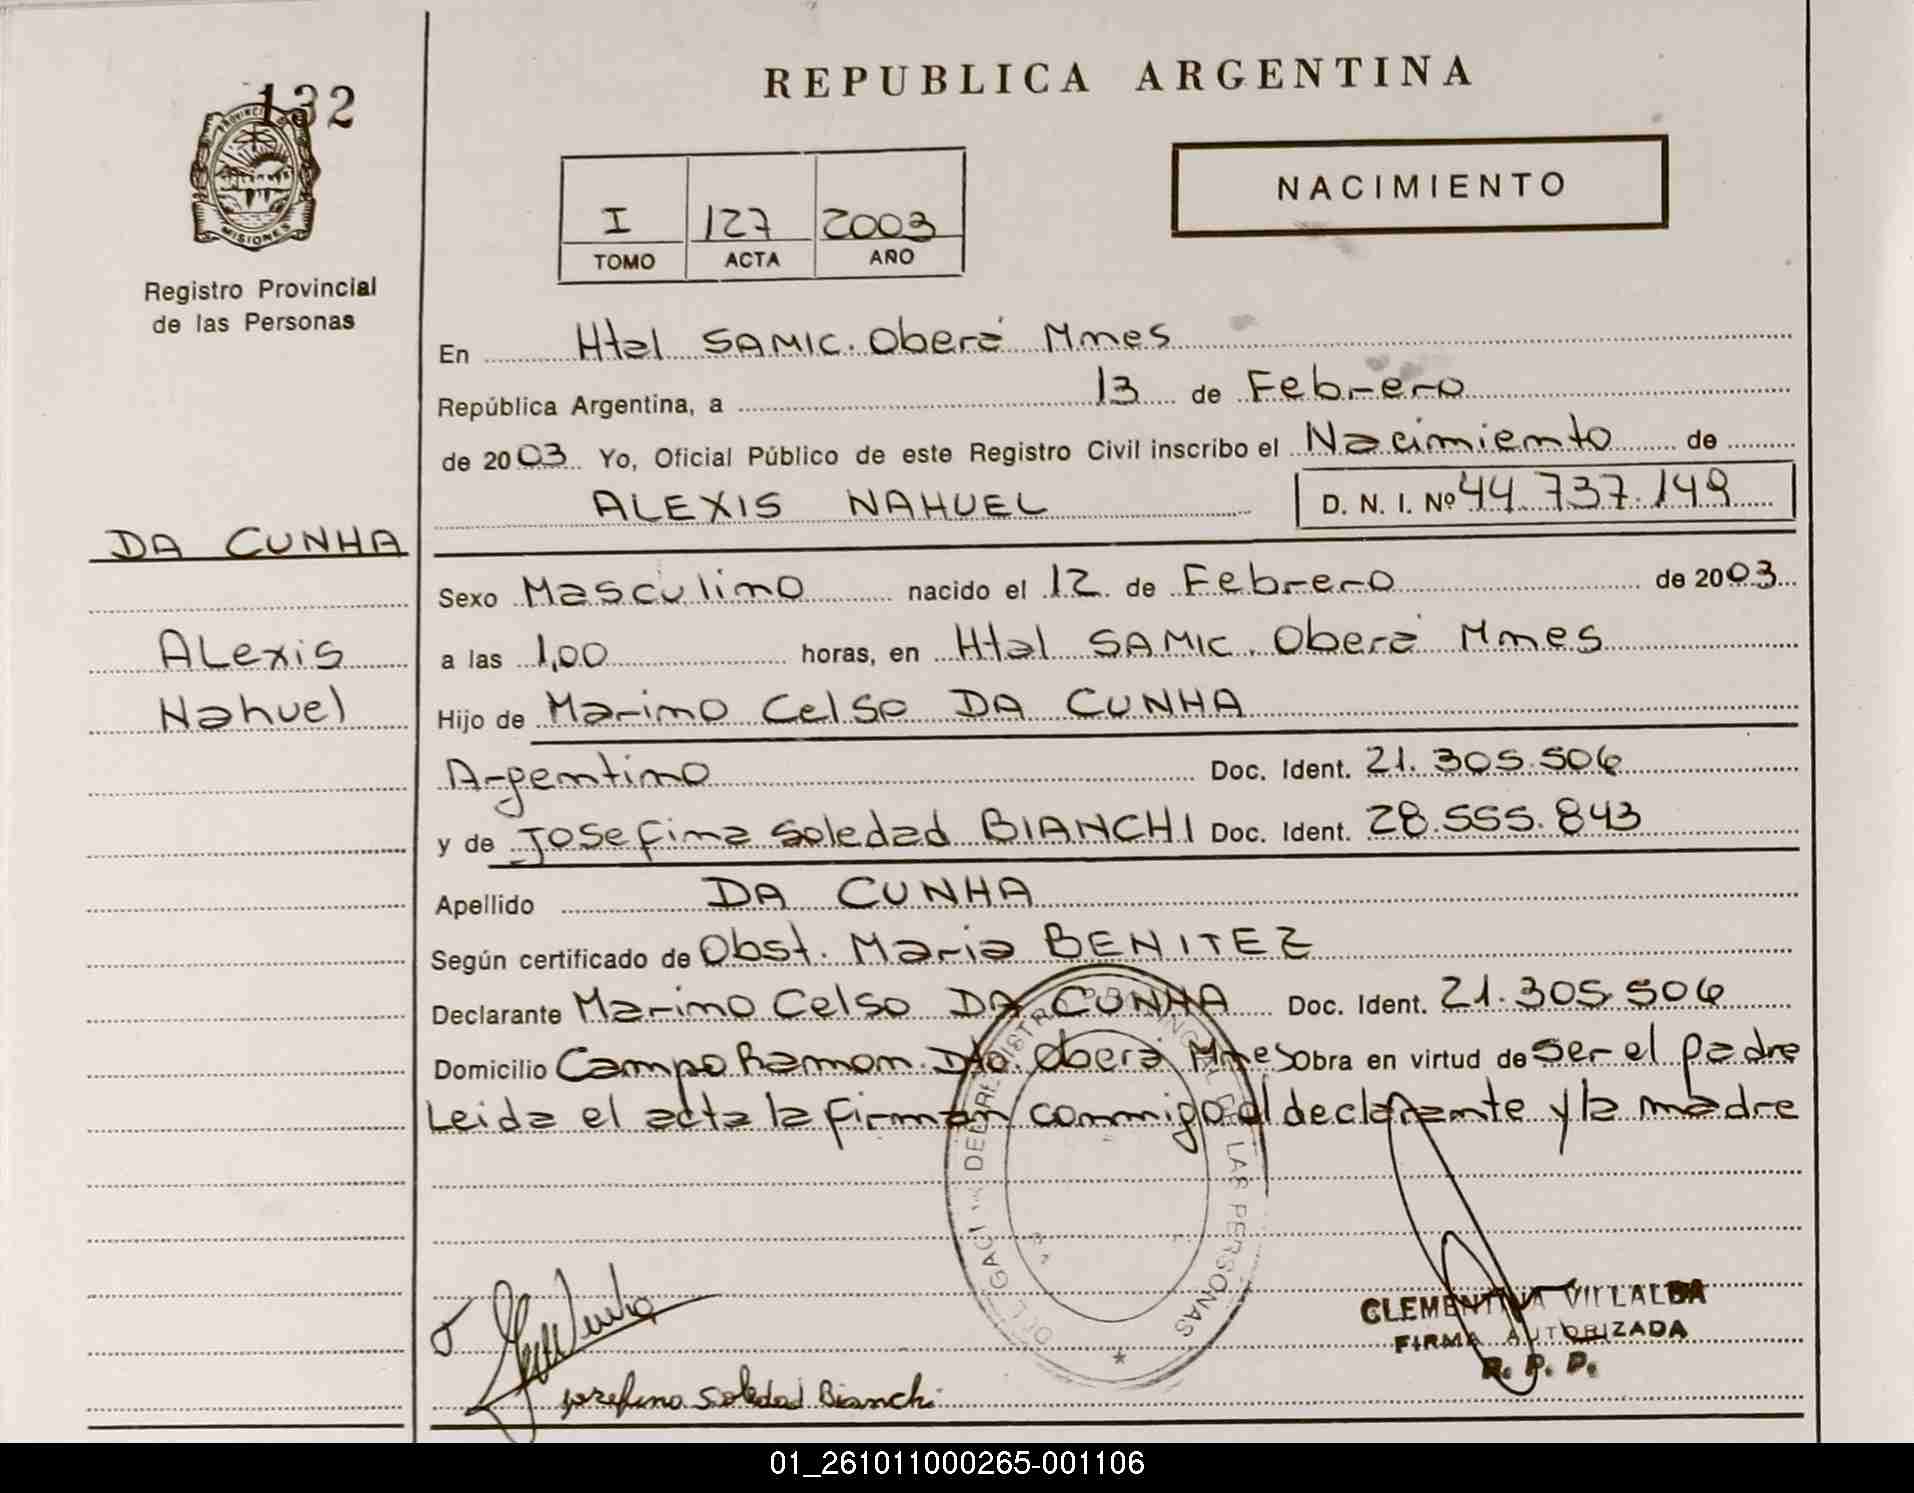 132
PROVINCIA DE
MISIONES
Registro Provincial
de las Personas
REPUBLICA ARGENTINA
NACIMIENTO
I 127 2003
TOMO ACTA AÑO
En Htal SAMIC. Oberá Mnes
República Argentina, a 13 de Febrero
de 2003 Yo, Oficial Público de este Registro Civil inscribo el Nacimiento de
ALEXIS NAHUEL D. N. I. Nº 44.737.149
DA CUNHA
Alexis
Nahuel
Sexo Masculino nacido el 12 de Febrero de 2003
a las 1,00 horas, en Htal SAMIC. Oberá Mnes
Hijo de Marino Celso DA CUNHA
Argentino Doc. Ident. 21.305.506
y de Josefina Soledad BIANCHI Doc. Ident. 28.555.843
Apellido DA CUNHA
Según certificado de Obst. Maria BENITEZ
Declarante Marino Celso DA CUNHA Doc. Ident. 21.305.506
Domicilio Campo Ramon. Dto. Oberá Mnes Obra en virtud de ser el padre
Leida el acta la firman conmigo el declarante y la madre
REGISTRO PROVINCIAL DE LAS PERSONAS
CLEMENTINA VILLALBA
FIRMA AUTORIZADA
R. P. P.
Josefina Soledad Bianchi
01_261011000265-001106